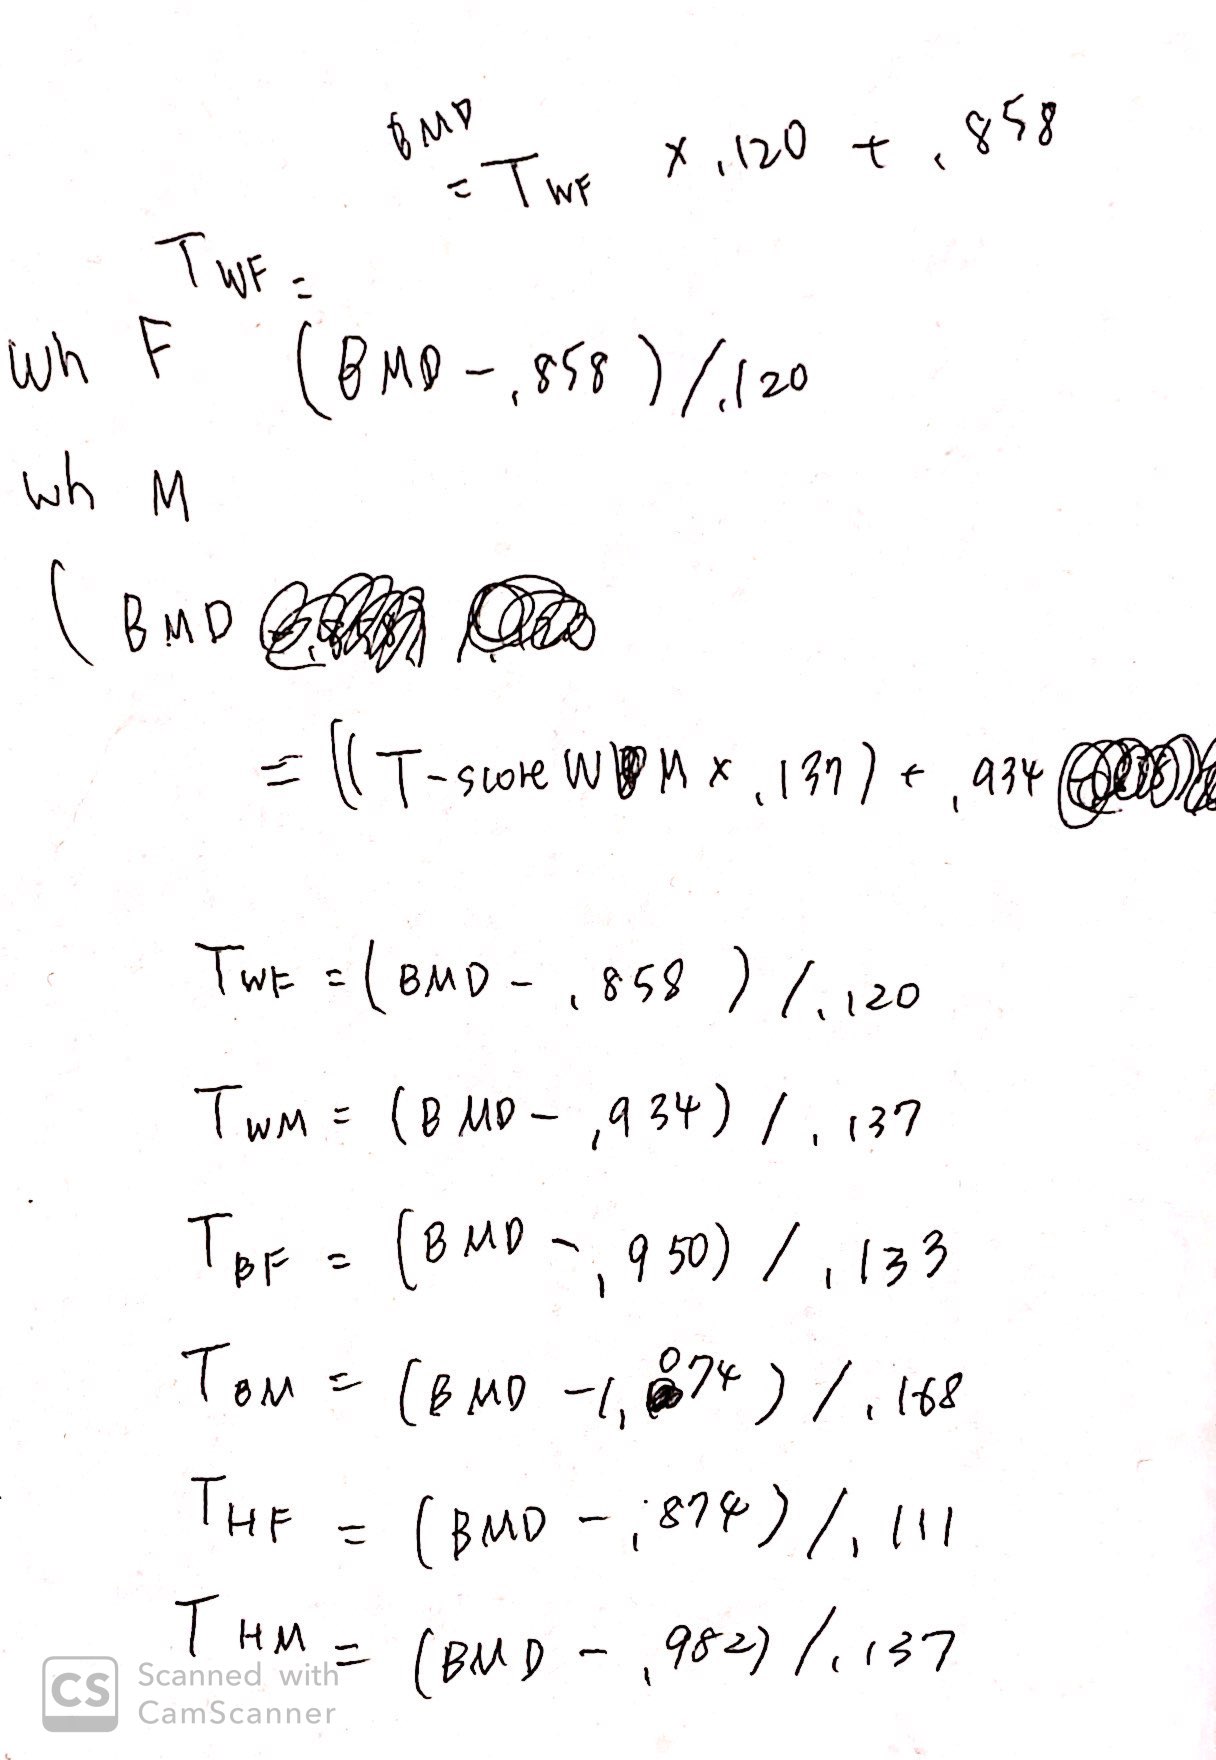 BMD
= TWF x .120 + .858
TWF =
Wh F (BMD - .858) / .120
Wh M
( BMD
= (( T-score W M x .137) + .934
TWF = ( BMD - .858 ) / .120
TWM = (BMD - .934) / .137
TBF = (BMD - .950) / .133
TBM = (BMD - 1.074) / .168
THF = (BMD - .874) / .111
THM = (BMD - .982) / .137
CS Scanned with
CamScanner